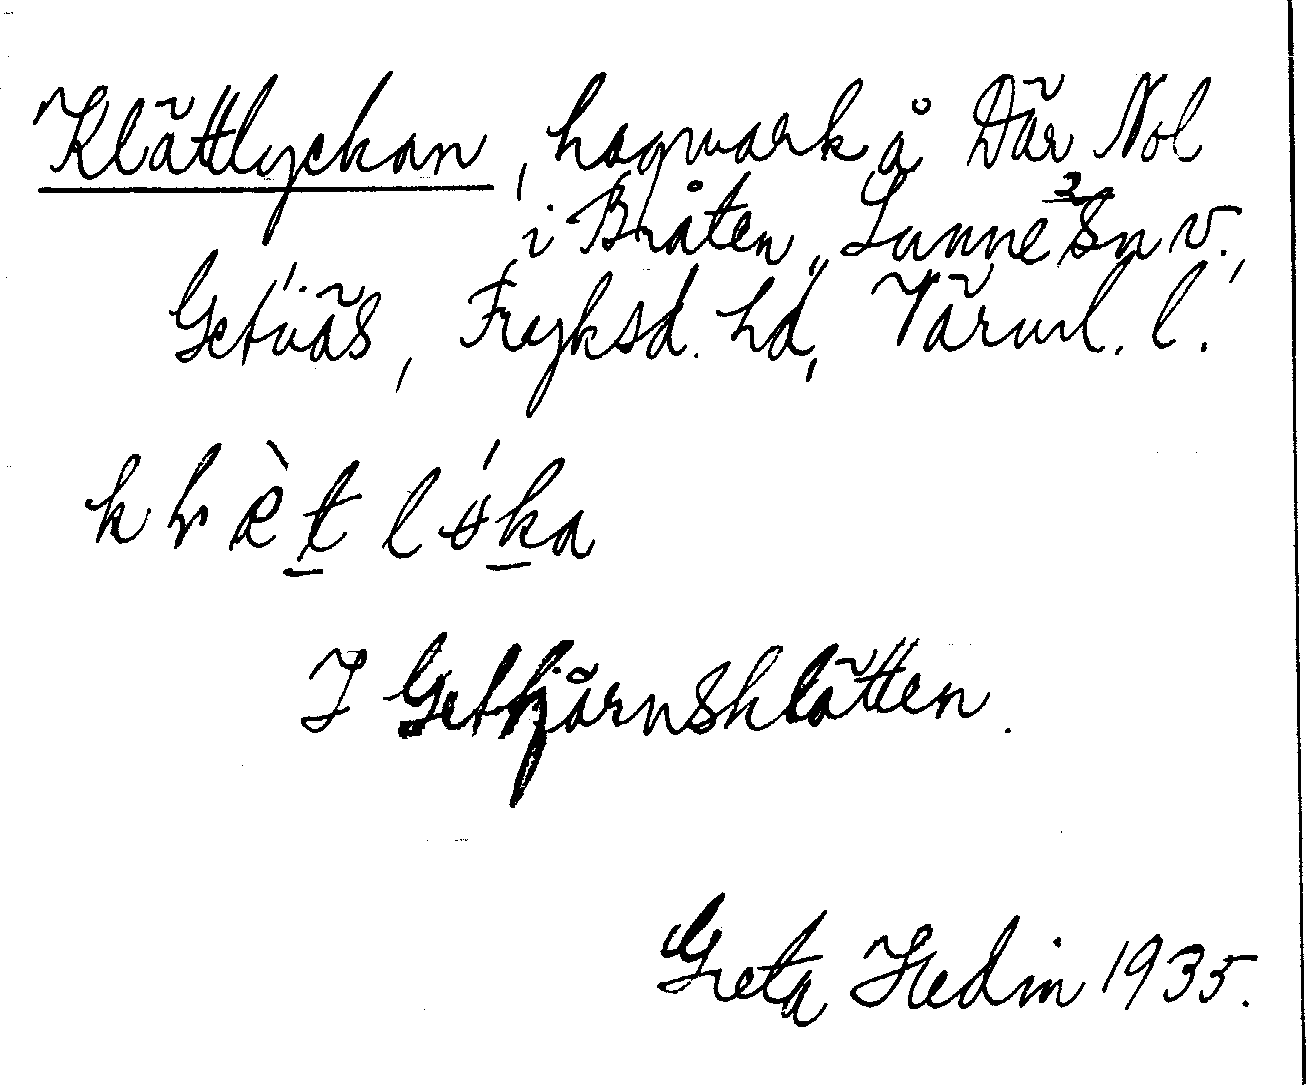 Klättlyckan, hagmark å Där Nol
i Bråten, Sunne sn v.,
Getnäs, Fryksd. hd, Värml. l.
I Getkjärnsklätten.
Greta Hedin 1935.